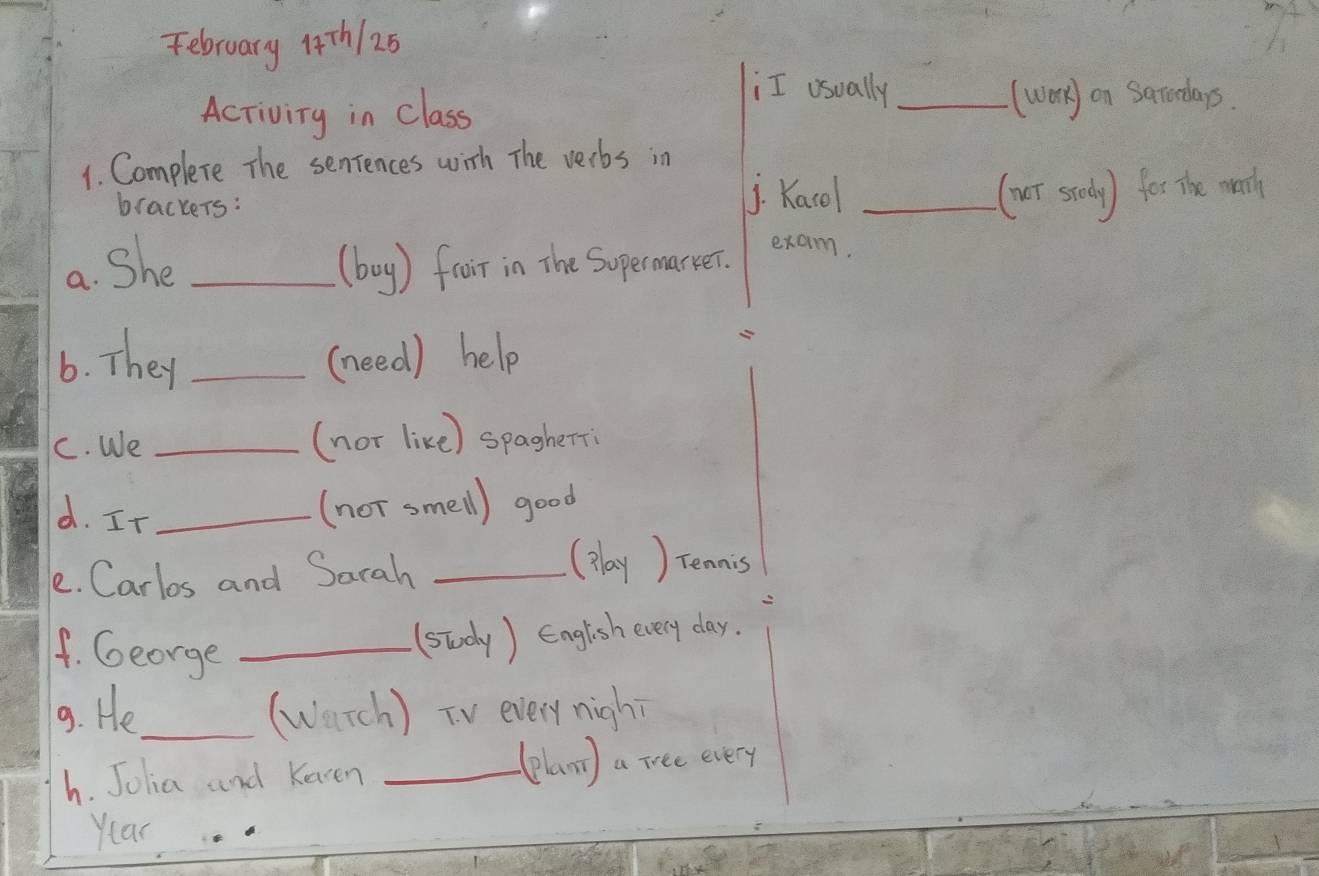 February 17th/25
Activity in class
1. Complete The sentences with The verbs in
brackets:
a. She ______ (buy) fruit in The Supermarket.
b. They ______ (need) help
c. We ______ (not like) spaghetti
d. It ______ (not smell) good
e. Carlos and Sarah ______ (Play ) Tennis
f. George ______ (study) English every day.
g. He ______ (Watch) T.V every night
h. Julia and Karen ______ (plant) a Tree every
Year
i I usually ______ (work) on Saturdays.
j. Karol ______ (not study) for The math
exam.